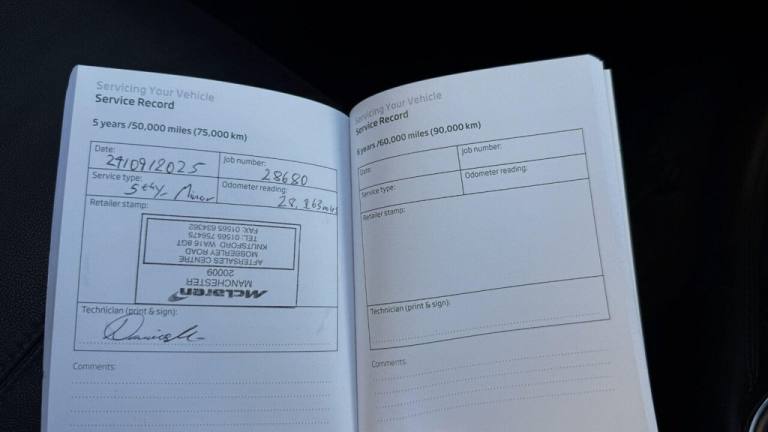 Servicing Your Vehicle
Service Record
5 years /50,000 miles (75,000 km)
Date:
Job number:
24/09/2025
28680
Service type:
Odometer reading:
5thy- Minor
28,863 miles
Retailer stamp:
McLaren
MANCHESTER
20009
AFTERSALES CENTRE
MOBBERLEY ROAD
KNUTSFORD WA16 8GT
TEL: 01565 756475
FAX: 01565 634362
Technician (print & sign):
Comments:
Servicing Your Vehicle
Service Record
6 years /60,000 miles (90,000 km)
Date:
Job number:
Service type:
Odometer reading:
Retailer stamp:
Technician (print & sign):
Comments: